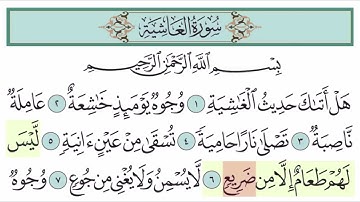 سُورَةُ الغَاشِيَةِ
بِسْمِ ٱللَّهِ ٱلرَّحْمَٰنِ ٱلرَّحِيمِ
هَلْ أَتَىٰكَ حَدِيثُ ٱلْغَٰشِيَةِ ١ وُجُوهٌ يَوْمَئِذٍ خَٰشِعَةٌ ٢ عَامِلَةٌ
نَّاصِبَةٌ ٣ تَصْلَىٰ نَارًا حَامِيَةً ٤ تُسْقَىٰ مِنْ عَيْنٍ ءَانِيَةٍ ٥ لَّيْسَ
لَهُمْ طَعَامٌ إِلَّا مِن ضَرِيعٍ ٦ لَّا يُسْمِنُ وَلَا يُغْنِى مِن جُوعٍ ٧ وُجُوهٌ